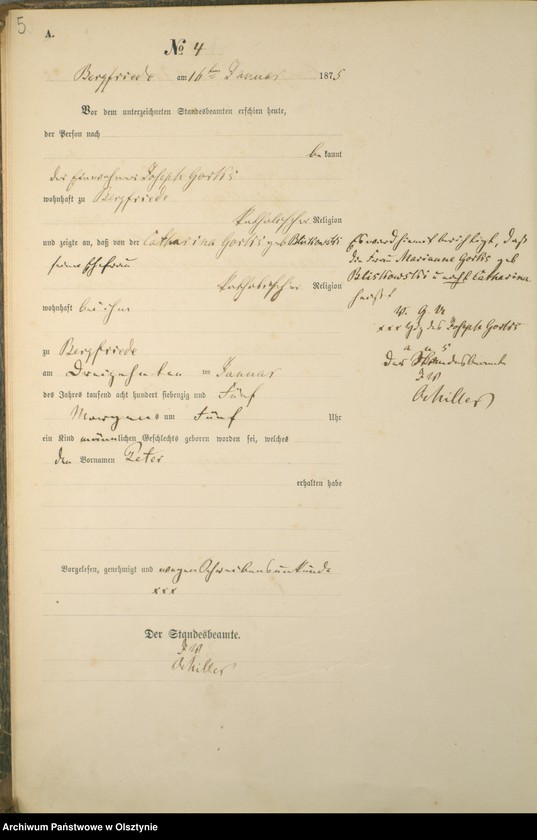 5
A.
No 4
Bergfriede am 16ten Januar 1875
Vor dem unterzeichneten Standesbeamten erschien heute,
der Person nach
bekannt
der Einwohner Joseph Gorski
wohnhaft zu Bergfriede
katholischer Religion
und zeigte an, daß von der Catharina Gorski geb Bliskowski
seiner Ehefrau
katholischer Religion
wohnhaft bei ihm
zu Bergfriede
am Dreizehnten ten Januar
des Jahres tausend acht hundert siebenzig und Fünf
Morgens um Fünf Uhr
ein Kind männlichen Geschlechts geboren worden sei, welches
den Vornamen Peter
erhalten habe
Vorgelesen, genehmigt und wegen Schreibensunkunde
xxx
Der Standesbeamte.
I V
Schiller
Es wird hiermit berichtigt, daß
die Frau Marianne Gorski geb
Bliskowski u nicht Catharina
heißt
V. G. U
xxx Hdz des Joseph Gorski
a u s
Der Standesbeamte
I V
Schiller
Archiwum Państwowe w Olsztynie